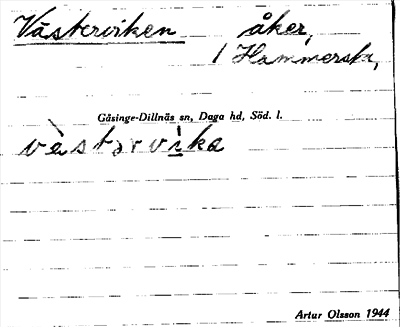 Västerviken åker,
1 Hammersta,
Gåsinge-Dillnäs sn, Daga hd, Söd. l.
vàstərvìka
Artur Olsson 1944